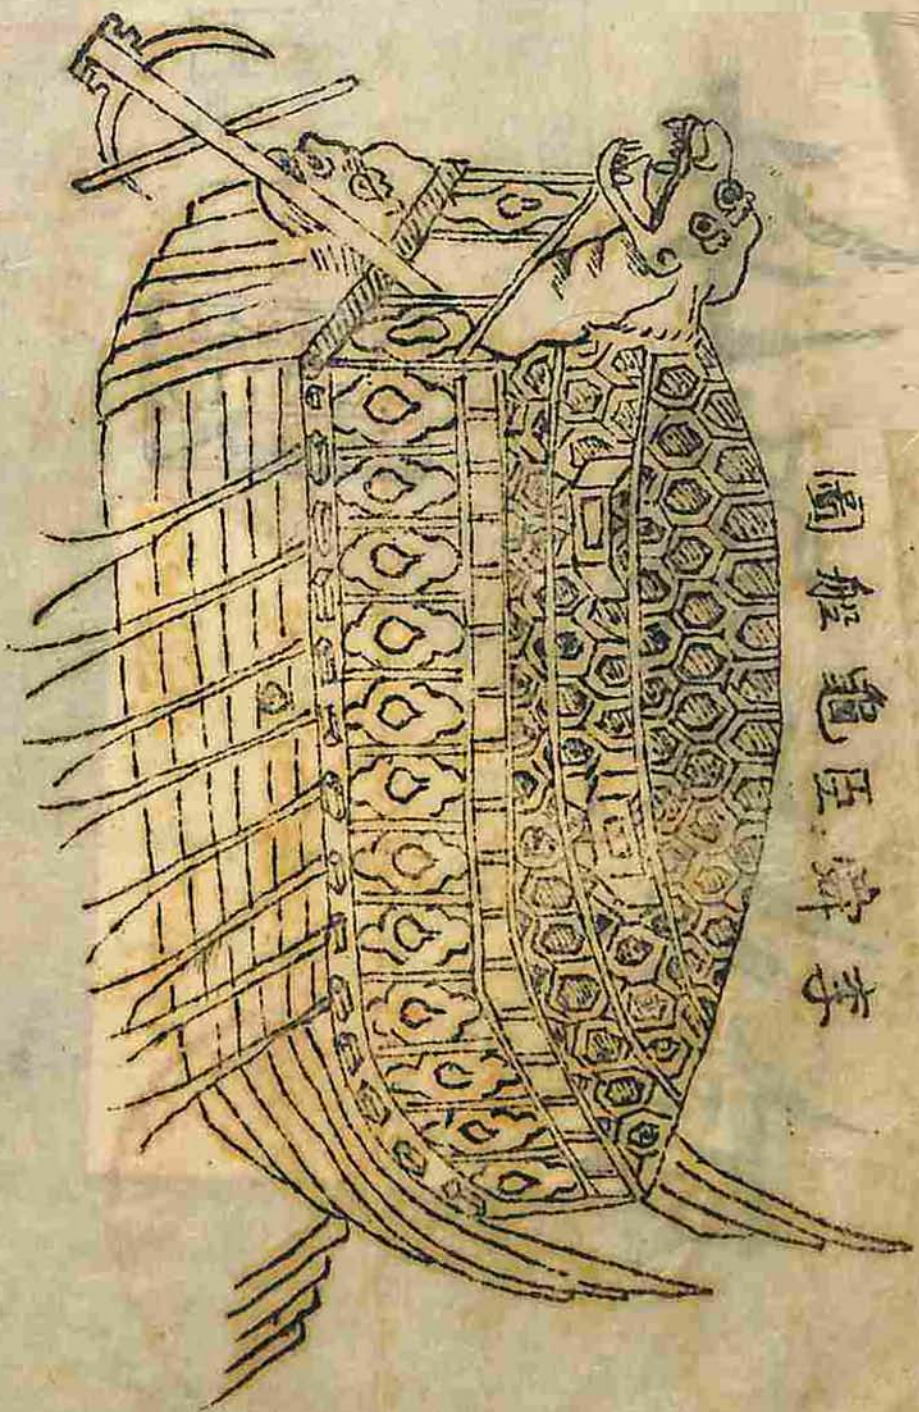 李舜臣龜船圖